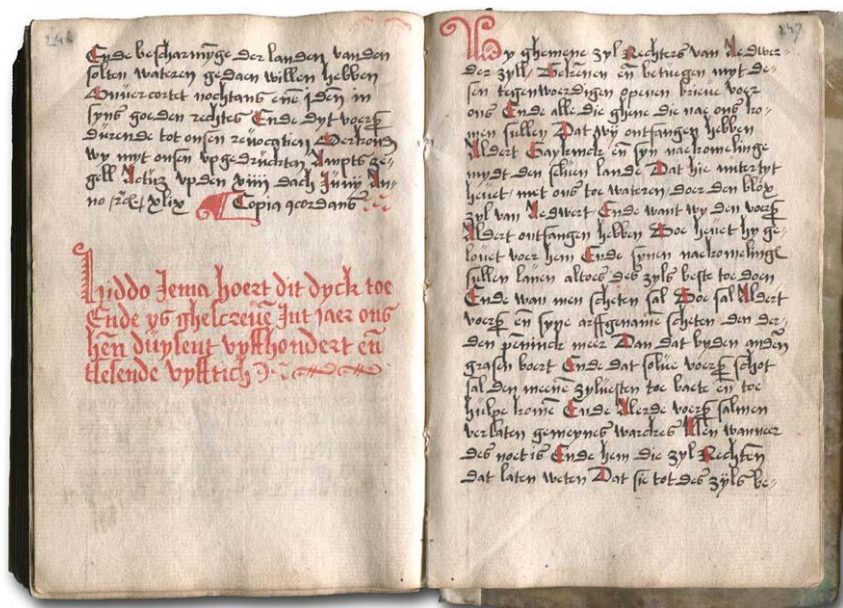 246
Ende bescharmynge der landen vanden
solten wateren gedaen willen hebben
Onvercortet nochtans ene iden in
syns goeden rechtes Ende dyt voerß
durende tot onsen revocatien Oerkond
wy myt onsen upgedruchten Ampts ze-
gell Actum upden xiiij dach Junij An-
no xlix Copia concordans
Hiddo Jema hoert dit dyck toe
Ende ys ghescreue Int jaer ons
hen duysent vyffhondert en
tlesende vyfftich
247
Wy ghemene zyl Rechters van Aedwer-
der zyll Bekenen en betuegen myt de-
sen tegenwoerdigen openen brieve voer
ons Ende alle die ghene die nae ons ko-
men sullen Dat wy ontfangen hebben
Aldert en syn nackomelinge
mydt den seluen lande Dat hie
heuet met ons toe wateren doer den
zyl van Aedwert Ende want wy den voerß
Aldert ontfangen hebben Soe heuet hy ge-
louet voer hem Ende synen nackomelinge
sullen altoes des zyls beste toe doen
Ende wan men scheten sal Soe sal Aldert
voerß en syne arffgename scheten den der-
den peninck meer Dan dat byden anden
grasen boert Ende dat solue voerß schot
sal den meene zyluesten toe baete en toe
hulpe kome Ende Alerde voerß salmen
verlaten gemeynes warckes Men wanneer
des noet is Ende hem die zyl Rechten
dat laten weten Dat sie tot des zyls be-